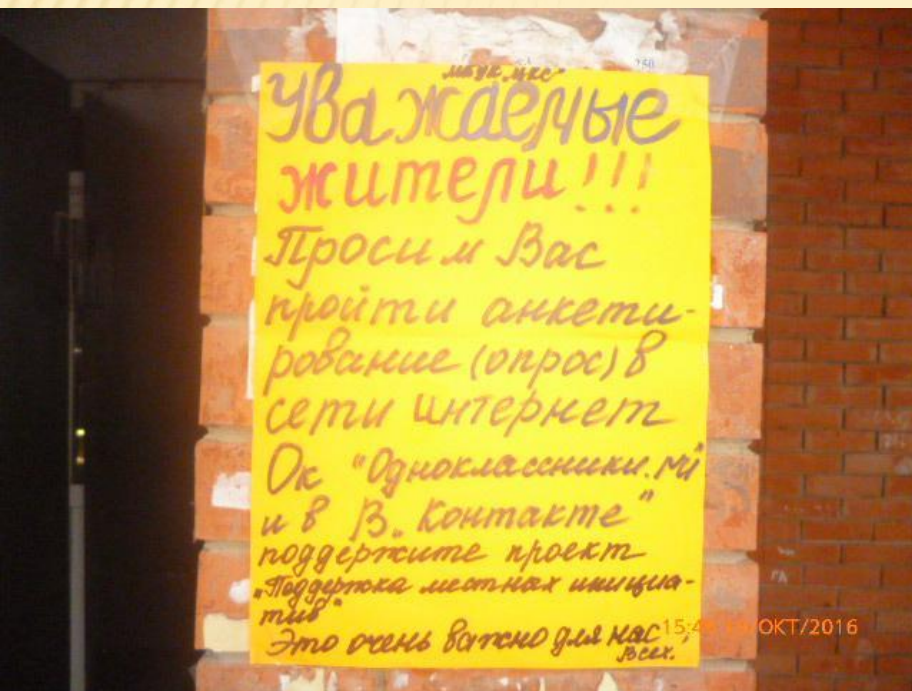 МБУК "ЦКС"
Уважаемые
жители!!!
Просим Вас
пройти анкети-
рование (опрос) в
сети интернет
Ок "Одноклассники.ru"
и в В„Контакте"
поддержите проект
„Поддержка местных инициа-
тив"
Это очень важно для нас
Всех.
ОКТ/2016